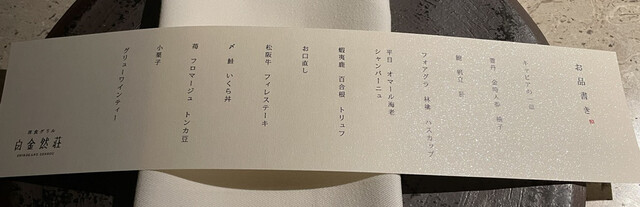 お品書き
キャビアの一皿
雲丹 金時人参 柚子
鮑 帆立 蕪
フォアグラ 林檎 ハスカップ
平目 オマール海老
シャンパーニュ
蝦夷鹿 百合根 トリュフ
お口直し
松阪牛 フィレステーキ
〆 鮭 いくら丼
苺 フロマージュ トンカ豆
小菓子
グリューワインティー
白金然荘